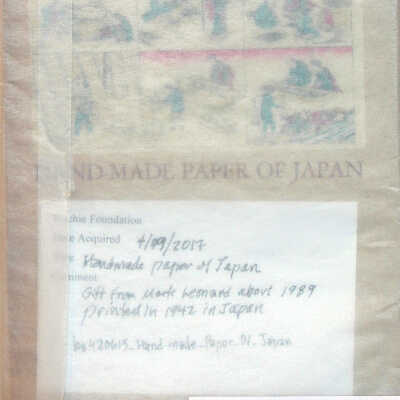 HAND-MADE PAPER OF JAPAN
Foundation
Acquired 4/09/2017
Handmade paper of Japan
Gift from Mark Leonard about 1989
printed in 1942 in Japan
Hand_made_Paper_Of_Japan